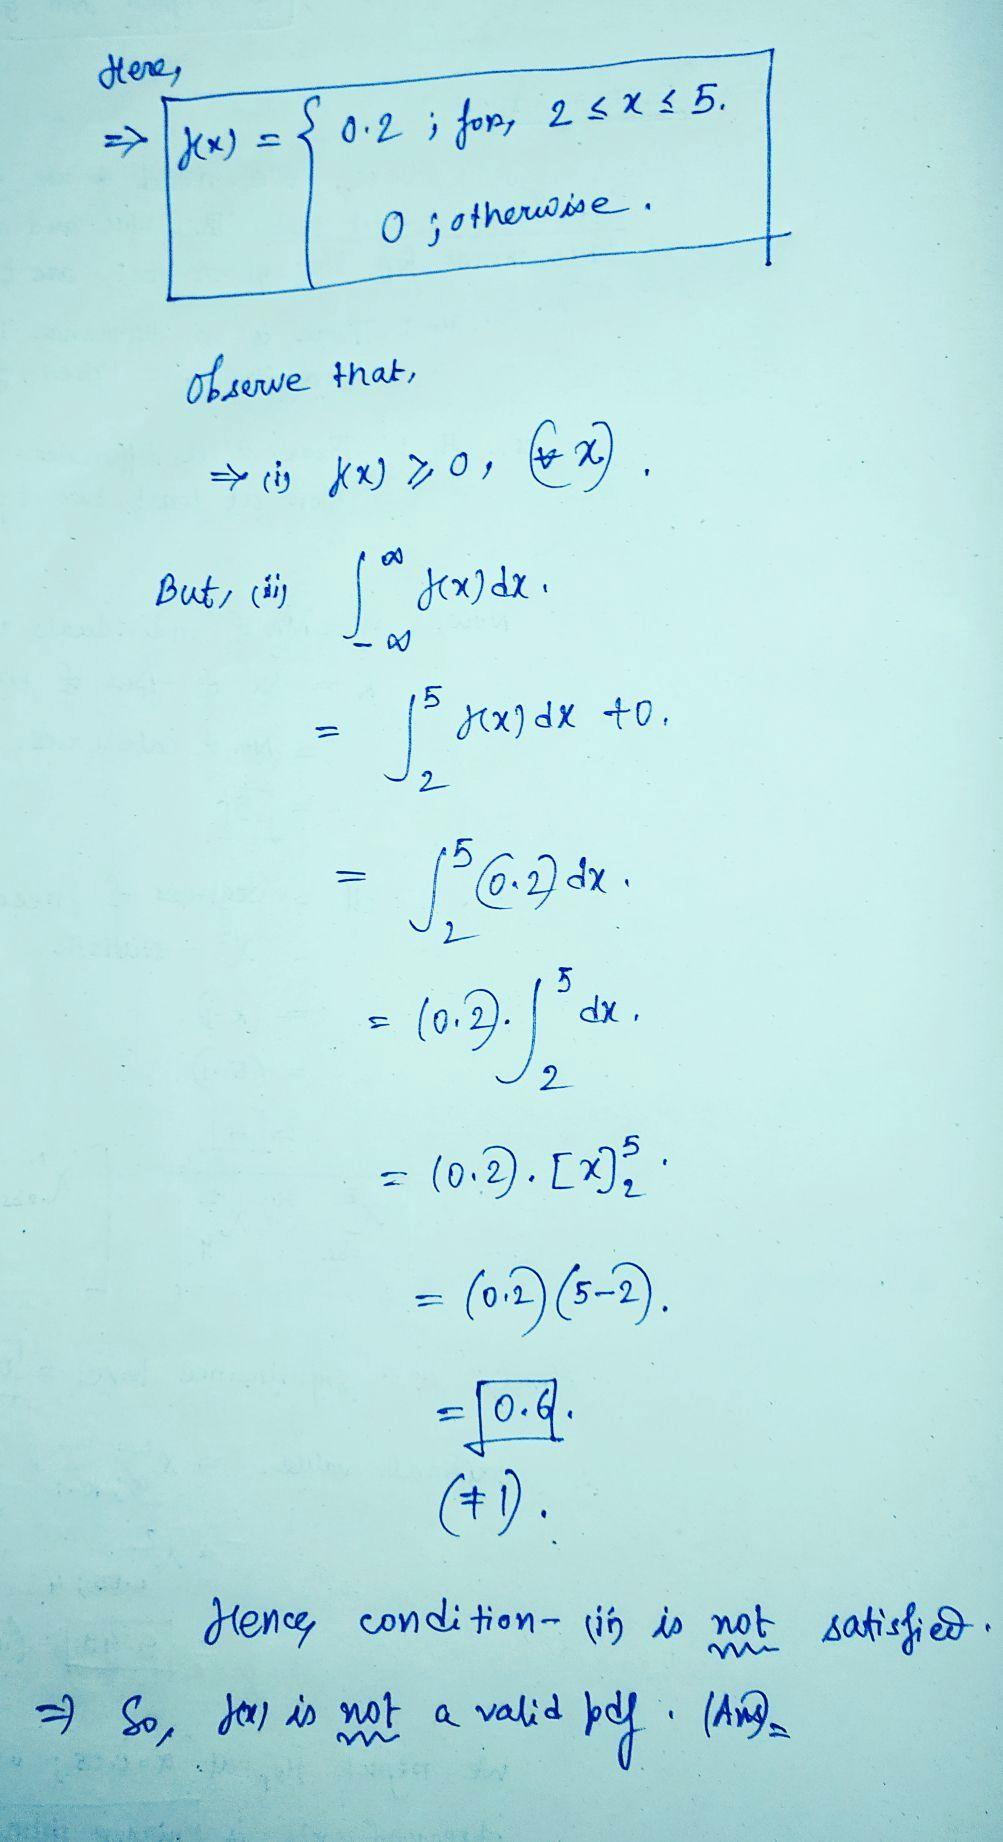 Here,
⇒ f(x) = { 0.2 ; for, 2 ≤ x ≤ 5.
0 ; otherwise.
Observe that,
⇒ (i) f(x) ≥ 0, (∀ x).
But, (ii) ∫_{-∞}^{∞} f(x) dx.
= ∫_2^5 f(x) dx +0.
= ∫_2^5 (0.2) dx.
= (0.2). ∫_2^5 dx.
= (0.2). [x]_2^5.
= (0.2) (5-2).
= 0.6.
(≠ 1).
Hence, condition- (ii) is not satisfied.
⇒ So, f(x) is not a valid pdf. (Ans)=